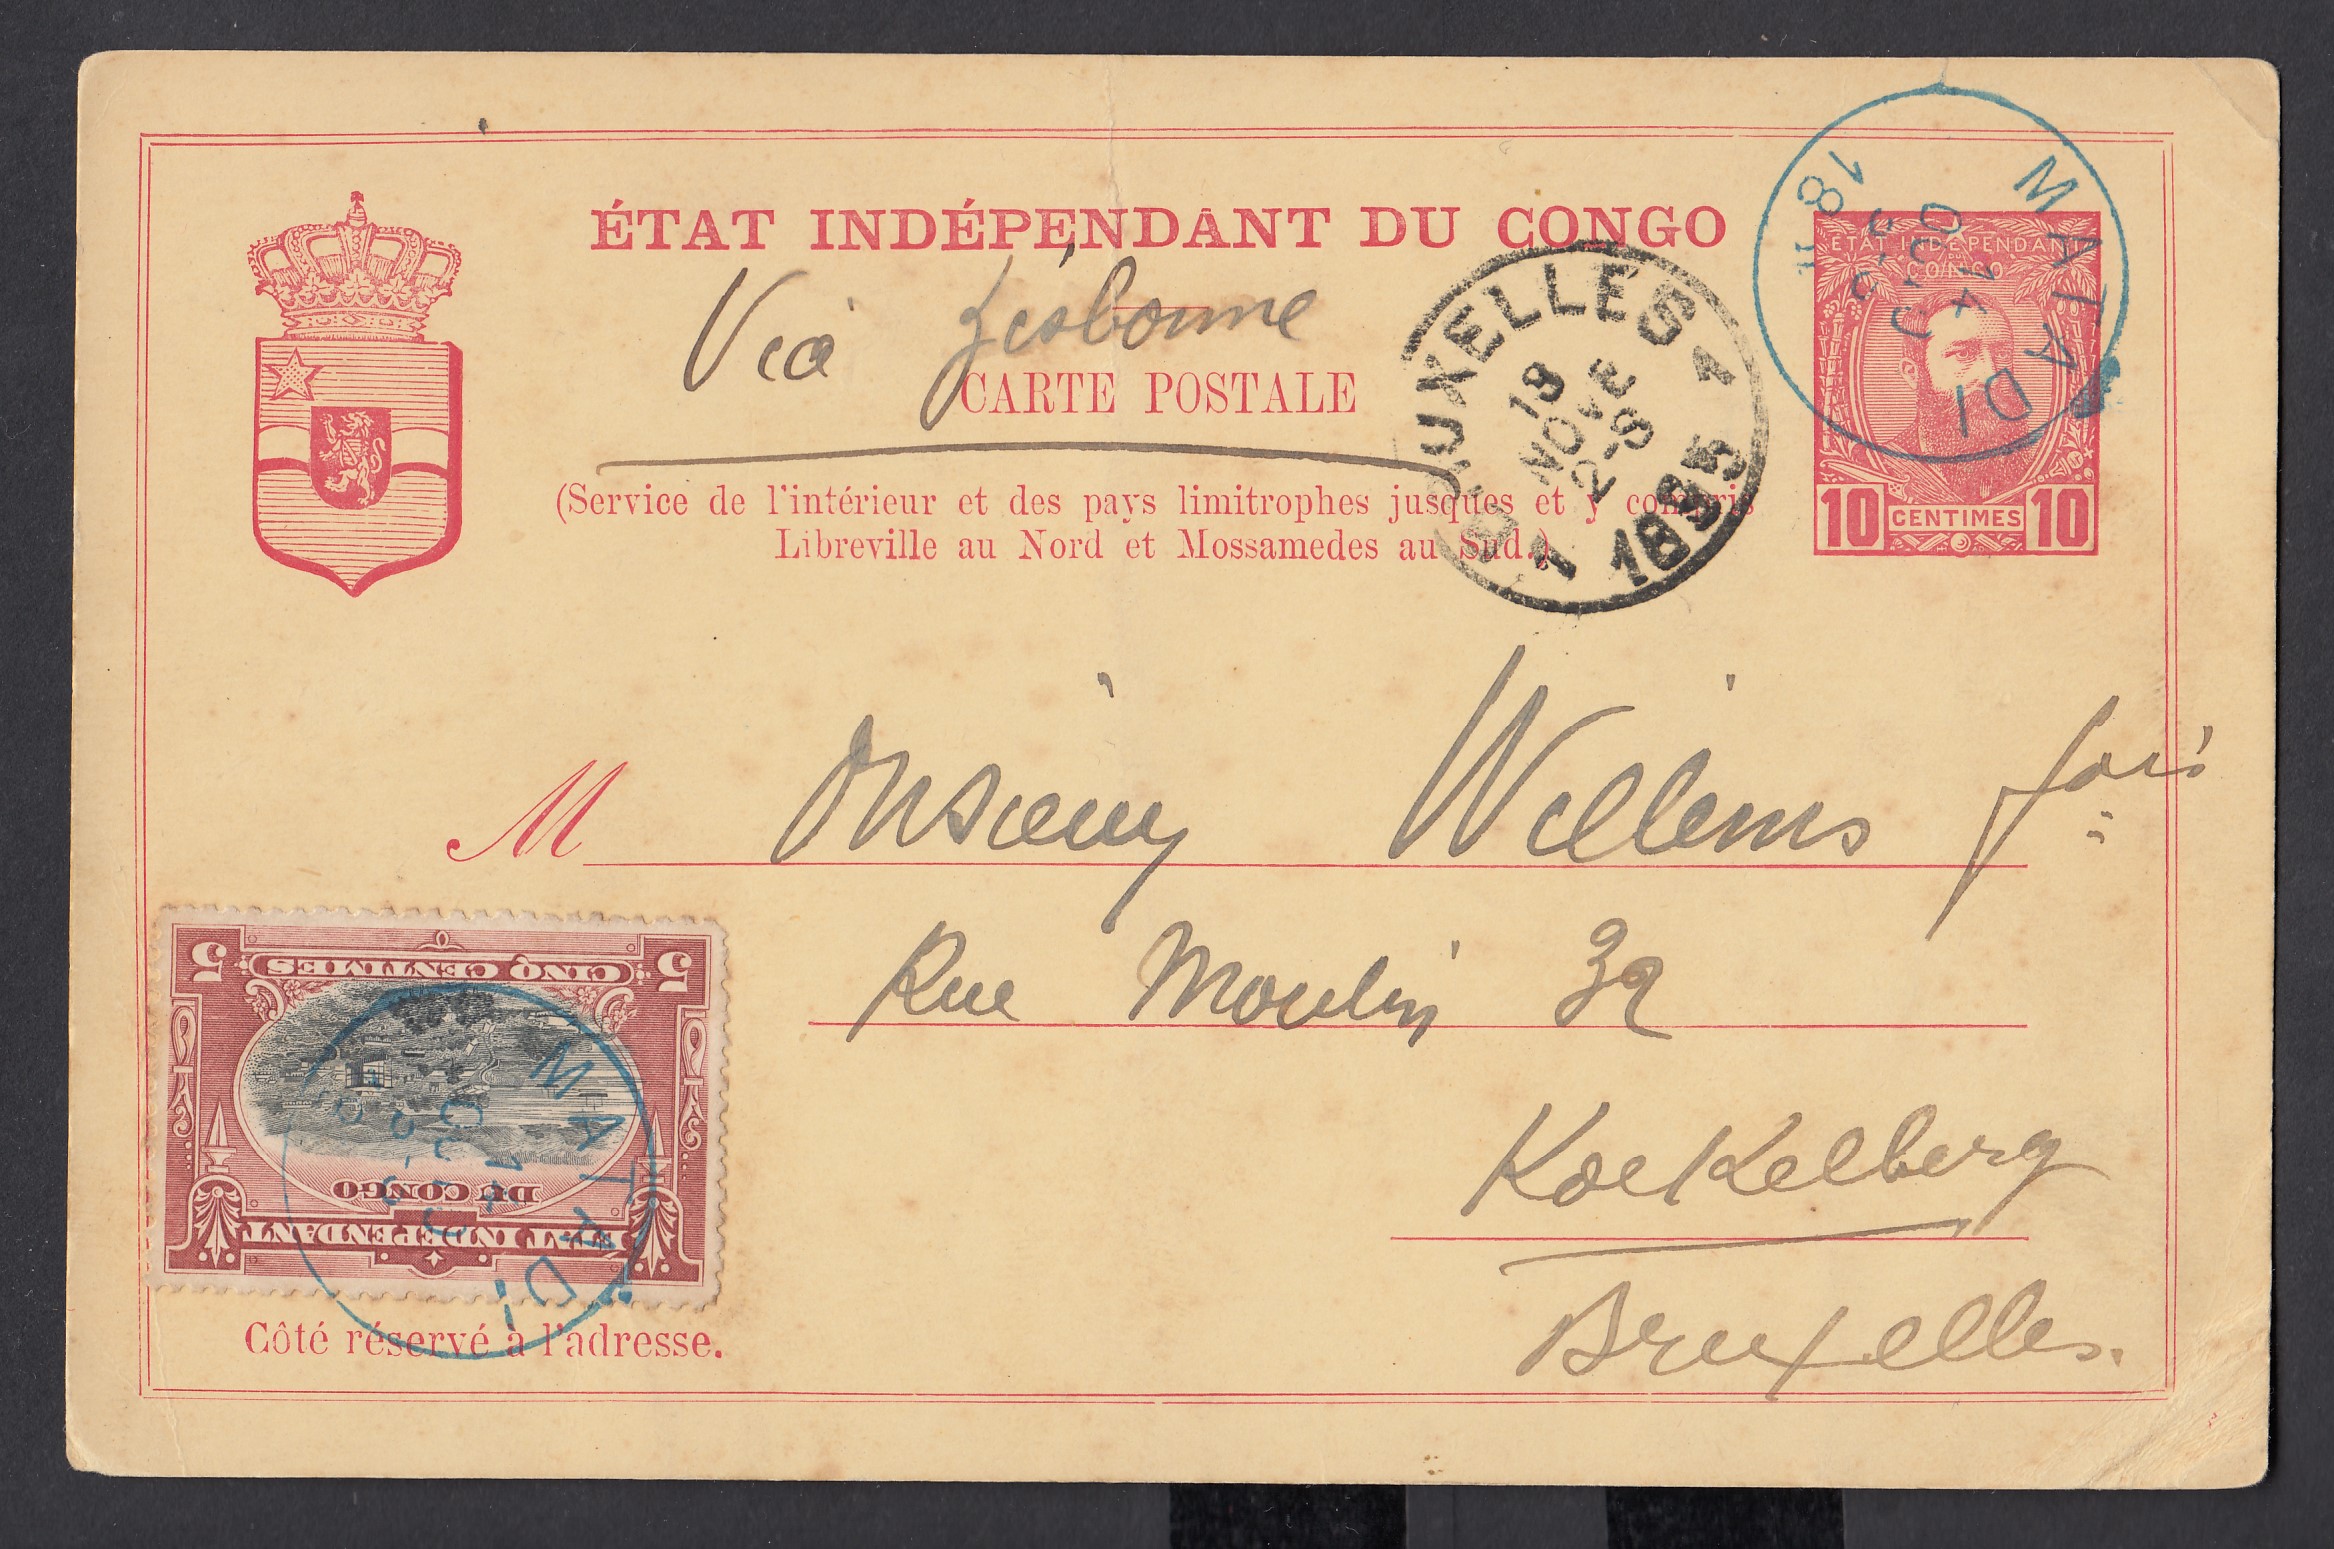 ÉTAT INDÉPENDANT DU CONGO
Via Lisbonne
CARTE POSTALE
(Service de l'intérieur et des pays limitrophes jusques et y compris
Libreville au Nord et Mossamedes au Sud.)
BRUXELLES 1
19
NOVE
2-S
1 1895
MATADI
14
OCT
ETAT INDÉPENDANT
DU
CONGO
10 CENTIMES 10
M Onsieur Willems
Rue Moulin 32
Koekelberg
Bruxelles.
5 CINQ CENTIMES 5
DU CONGO
ETAT INDEPENDANT
MATADI
14
Côté réservé à l'adresse.